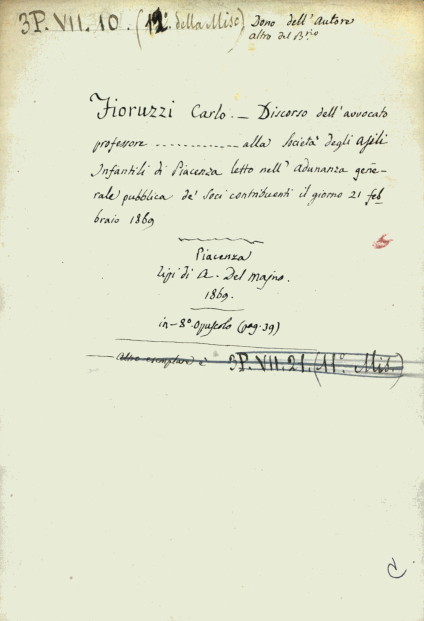 3P. VII. 10. (12º della Misc) Dono dell'Autore
altro del B.rio
Fioruzzi Carlo. — Discorso dell'avvocato
professore ------------ alla Società degli Asili
Infantili di Piacenza letto nell' Adunanza gene-
rale pubblica de' Soci contribuenti il giorno 21 feb
braio 1869
Piacenza
Tipi di A. Del Majno.
1869.
in-8º opuscolo (pag. 39)
altro esemplare è 3P. VII. 21. (11º Mis.)